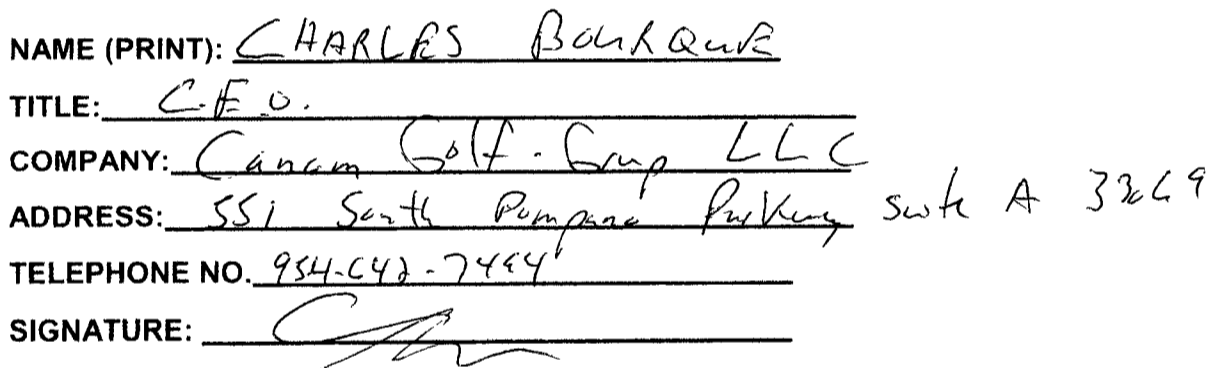 NAME (PRINT): CHARLES BOURQUE
TITLE: C.E.O.
COMPANY: Canam Golf - Group LLC
ADDRESS: 551 South Pompano Parkway Suite A 33069
TELEPHONE NO. 954-642-7494
SIGNATURE: